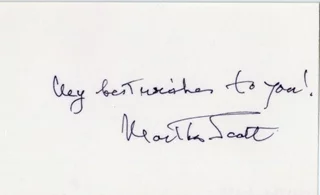 My best wishes to you!
Martha Scott